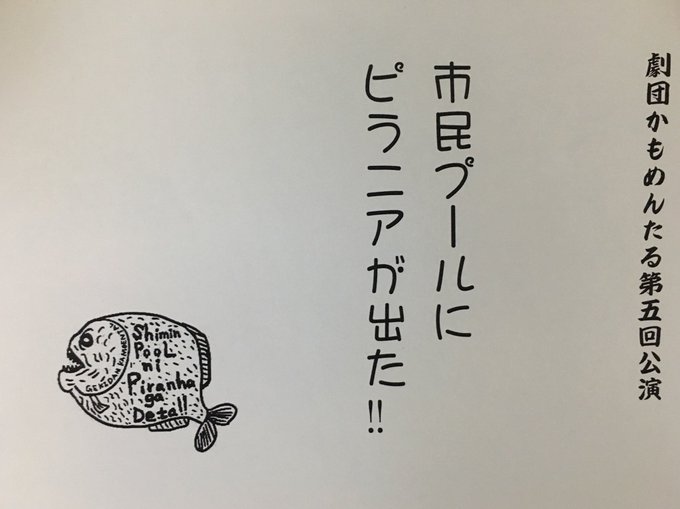 劇団かもめんたる第五回公演
市民プールに
ピラニアが出た!!
Shimin
PooL
ni
Piranha
ga
Deta!!